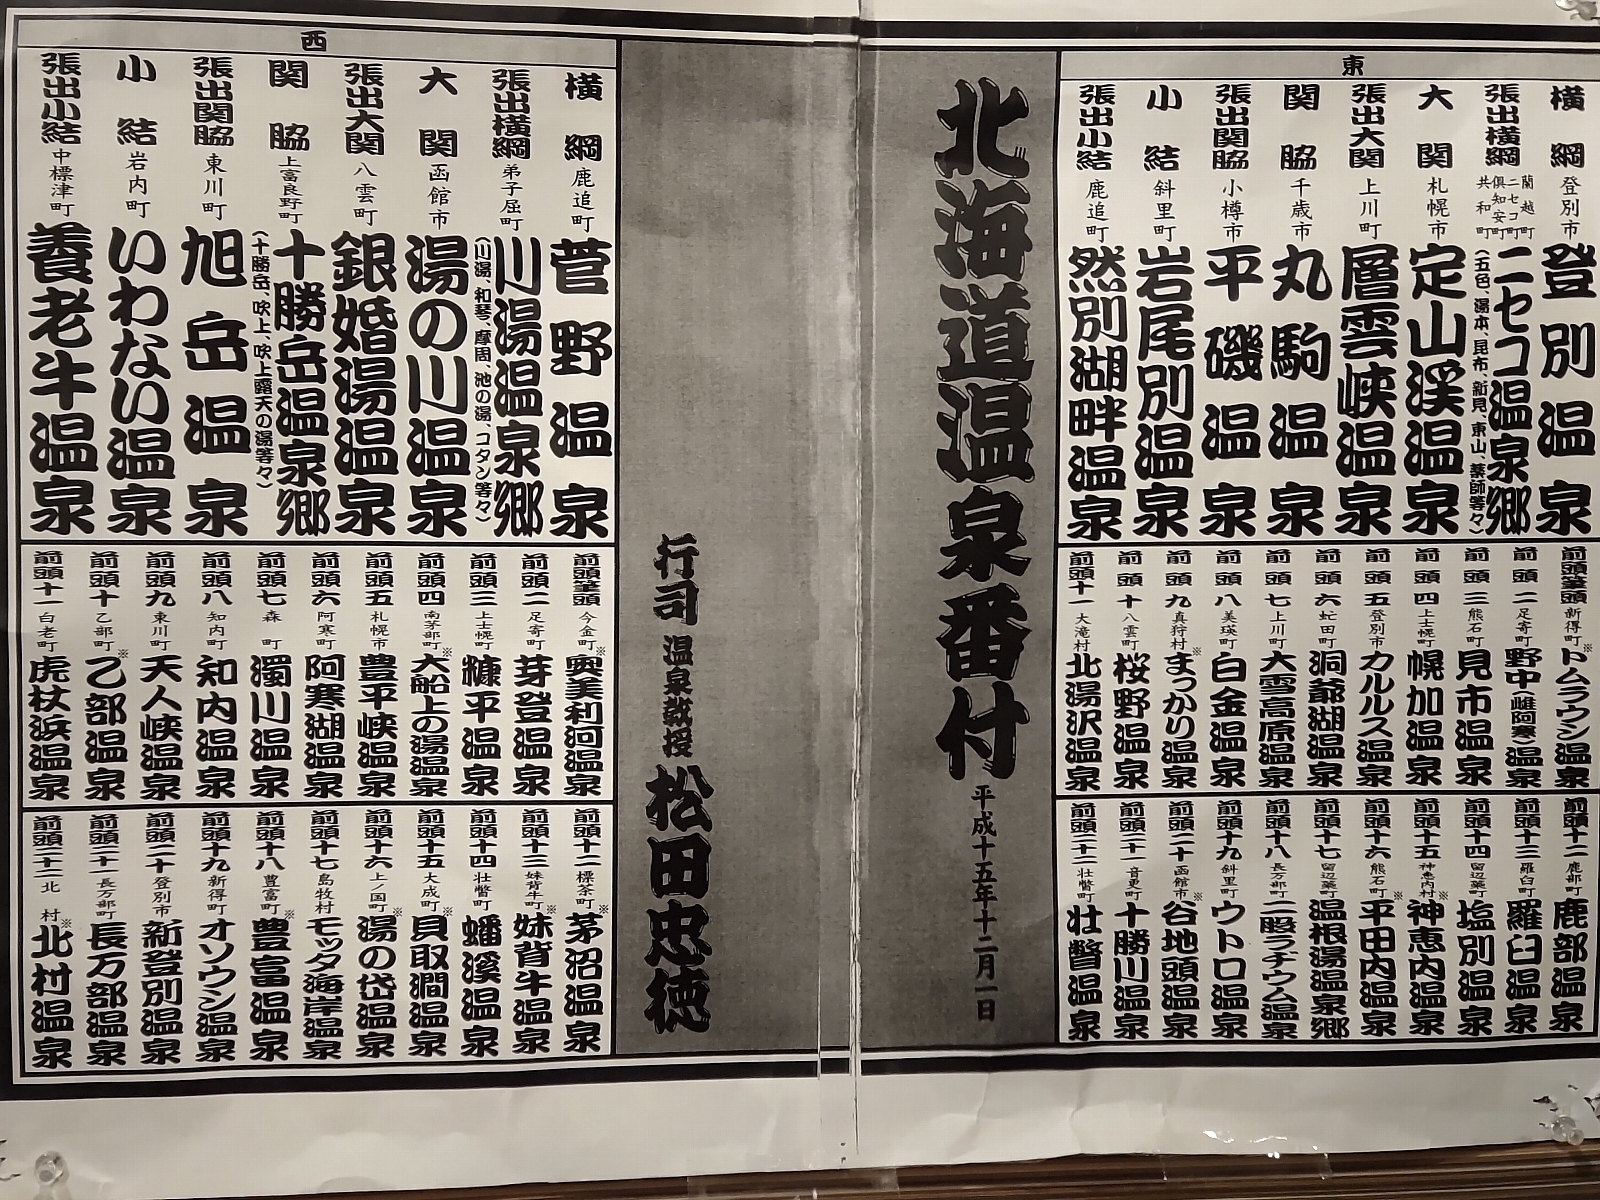 東
横綱 登別市 登別温泉
張出横綱 蘭越町 ニセコ町 倶知安町 共和町 ニセコ温泉郷 (五色、湯本、昆布、新見、東山、薬師等々)
大関 札幌市 定山渓温泉
張出大関 上川町 層雲峡温泉
関脇 千歳市 丸駒温泉
張出関脇 小樽市 平磯温泉
小結 斜里町 岩尾別温泉
張出小結 鹿追町 然別湖畔温泉
前頭筆頭 新得町 ※トムラウシ温泉
前頭二 足寄町 野中(雌阿寒)温泉
前頭三 熊石町 見市温泉
前頭四 上士幌町 幌加温泉
前頭五 登別市 カルルス温泉
前頭六 虻田町 洞爺湖温泉
前頭七 上川町 大雪高原温泉
前頭八 美瑛町 白金温泉
前頭九 真狩村 ※まっかり温泉
前頭十 八雲町 桜野温泉
前頭十一 大滝村 北湯沢温泉
前頭十二 鹿部町 鹿部温泉
前頭十三 羅臼町 羅臼温泉
前頭十四 留辺蘂町 塩別温泉
前頭十五 神恵内村 ※神恵内温泉
前頭十六 熊石町 ※平田内温泉
前頭十七 留辺蘂町 温根湯温泉郷
前頭十八 長万部町 二股ラヂウム温泉
前頭十九 斜里町 ウトロ温泉
前頭二十 函館市 ※谷地頭温泉
前頭二十一 音更町 十勝川温泉
前頭二十二 壮瞥町 壮瞥温泉
北海道温泉番付
平成十五年十二月一日
行司 温泉教授 松田忠徳
西
横綱 鹿追町 菅野温泉
張出横綱 弟子屈町 川湯温泉郷 (川湯、和琴、摩周、池の湯、コタン等々)
大関 函館市 湯の川温泉
張出大関 八雲町 銀婚湯温泉
関脇 上富良野町 十勝岳温泉郷 (十勝岳、吹上、吹上露天の湯等々)
張出関脇 東川町 旭岳温泉
小結 岩内町 いわない温泉
張出小結 中標津町 養老牛温泉
前頭筆頭 今金町 ※奥美利河温泉
前頭二 足寄町 芽登温泉
前頭三 上士幌町 糠平温泉
前頭四 南茅部町 ※大船上の湯温泉
前頭五 札幌市 豊平峡温泉
前頭六 阿寒町 阿寒湖温泉
前頭七 森町 濁川温泉
前頭八 知内町 知内温泉
前頭九 東川町 天人峡温泉
前頭十 乙部町 ※乙部温泉
前頭十一 白老町 虎杖浜温泉
前頭十二 標茶町 ※茅沼温泉
前頭十三 妹背牛町 ※妹背牛温泉
前頭十四 壮瞥町 蟠溪温泉
前頭十五 大成町 ※貝取澗温泉
前頭十六 上ノ国町 ※湯の岱温泉
前頭十七 島牧村 モッタ海岸温泉
前頭十八 豊富町 ※豊富温泉
前頭十九 新得町 オソウシ温泉
前頭二十 登別市 新登別温泉
前頭二十一 長万部町 長万部温泉
前頭二十二 北村 ※北村温泉